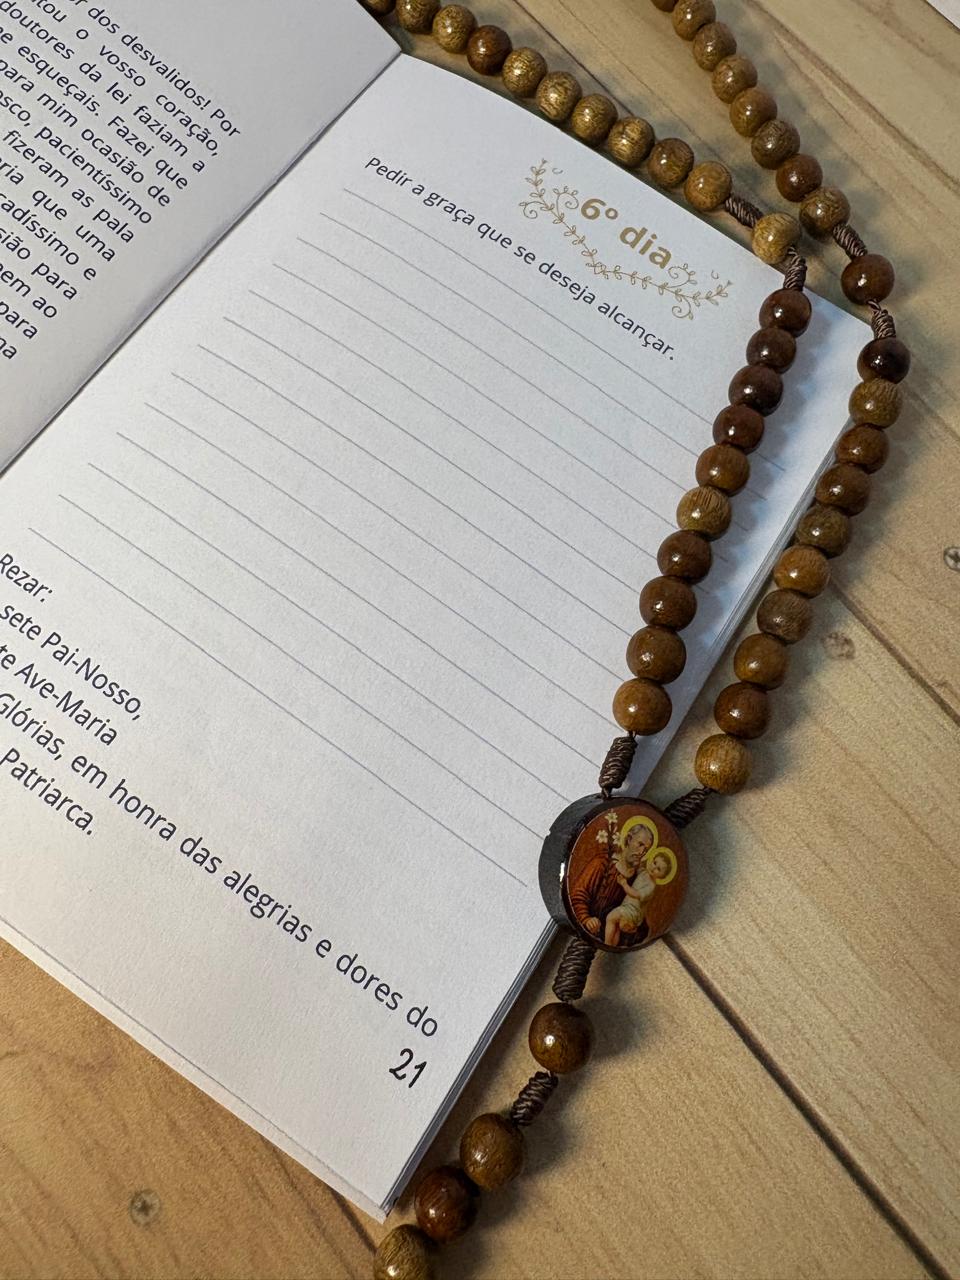 dos desvalidos! Por
o vosso coração,
doutores da lei faziam a
esqueçais. Fazei que
para mim ocasião de
pacientíssimo
fizeram as pala
que uma
e
para
em ao
para
6º dia
Pedir a graça que se deseja alcançar.
Rezar:
sete Pai-Nosso,
te Ave-Maria
Glórias, em honra das alegrias e dores do
Patriarca.
21